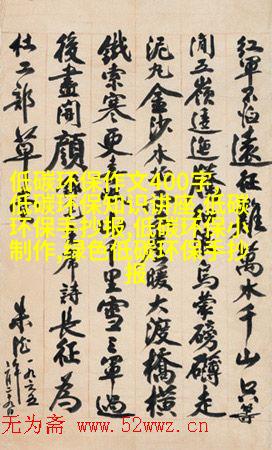 紅軍不怕遠征難萬水千山只等
閒五嶺逶迤烏蒙磅礴走
泥丸金沙水暖大渡橋橫
鐵索寒更里雪三軍過
後盡開顏席詩長征為
杜工部草
朱德
一九六五
低碳环保作文400字,
低碳环保知识讲座,低碳
环保手抄报,低碳环保小
制作,绿色低碳环保手抄
报
无为斋 www.52wwz.cn